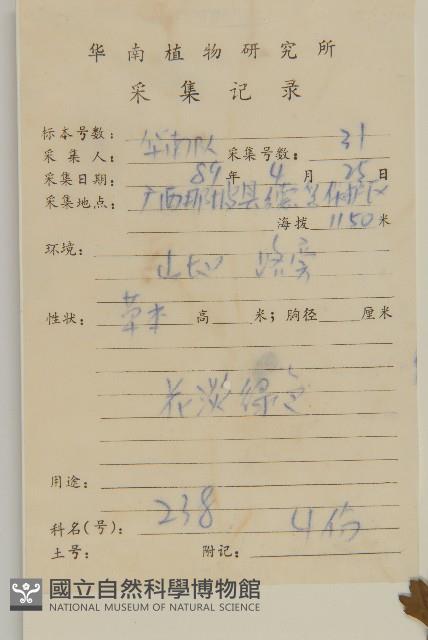 华南植物研究所
采集记录
标本号数:
采集人: 华南队 采集号数: 31
采集日期: 89年4月25日
采集地点: 广西那坡县德孚保护区
海拔 1150 米
环境: 山 路旁
性状: 草本 高 米; 胸径 厘米
花淡绿色
用途:
科名(号): 238
土号: 附记: 4份
國立自然科學博物館
NATIONAL MUSEUM OF NATURAL SCIENCE